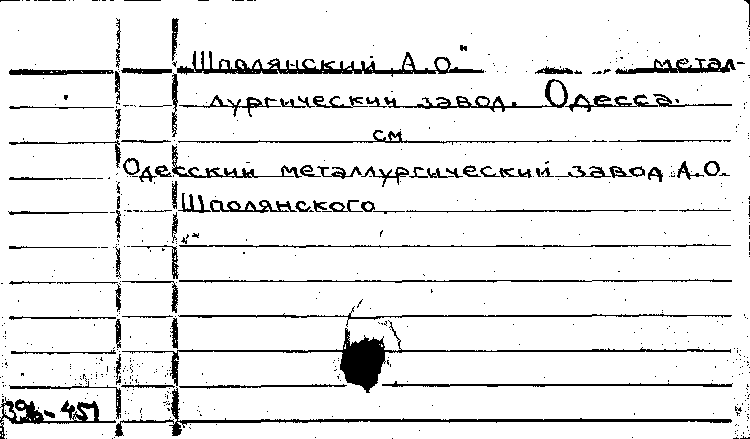 Шполянский А.О." метал-
лургический завод. Одесса.
см
Одесский металлургический завод А.О.
Шполянского
396-451